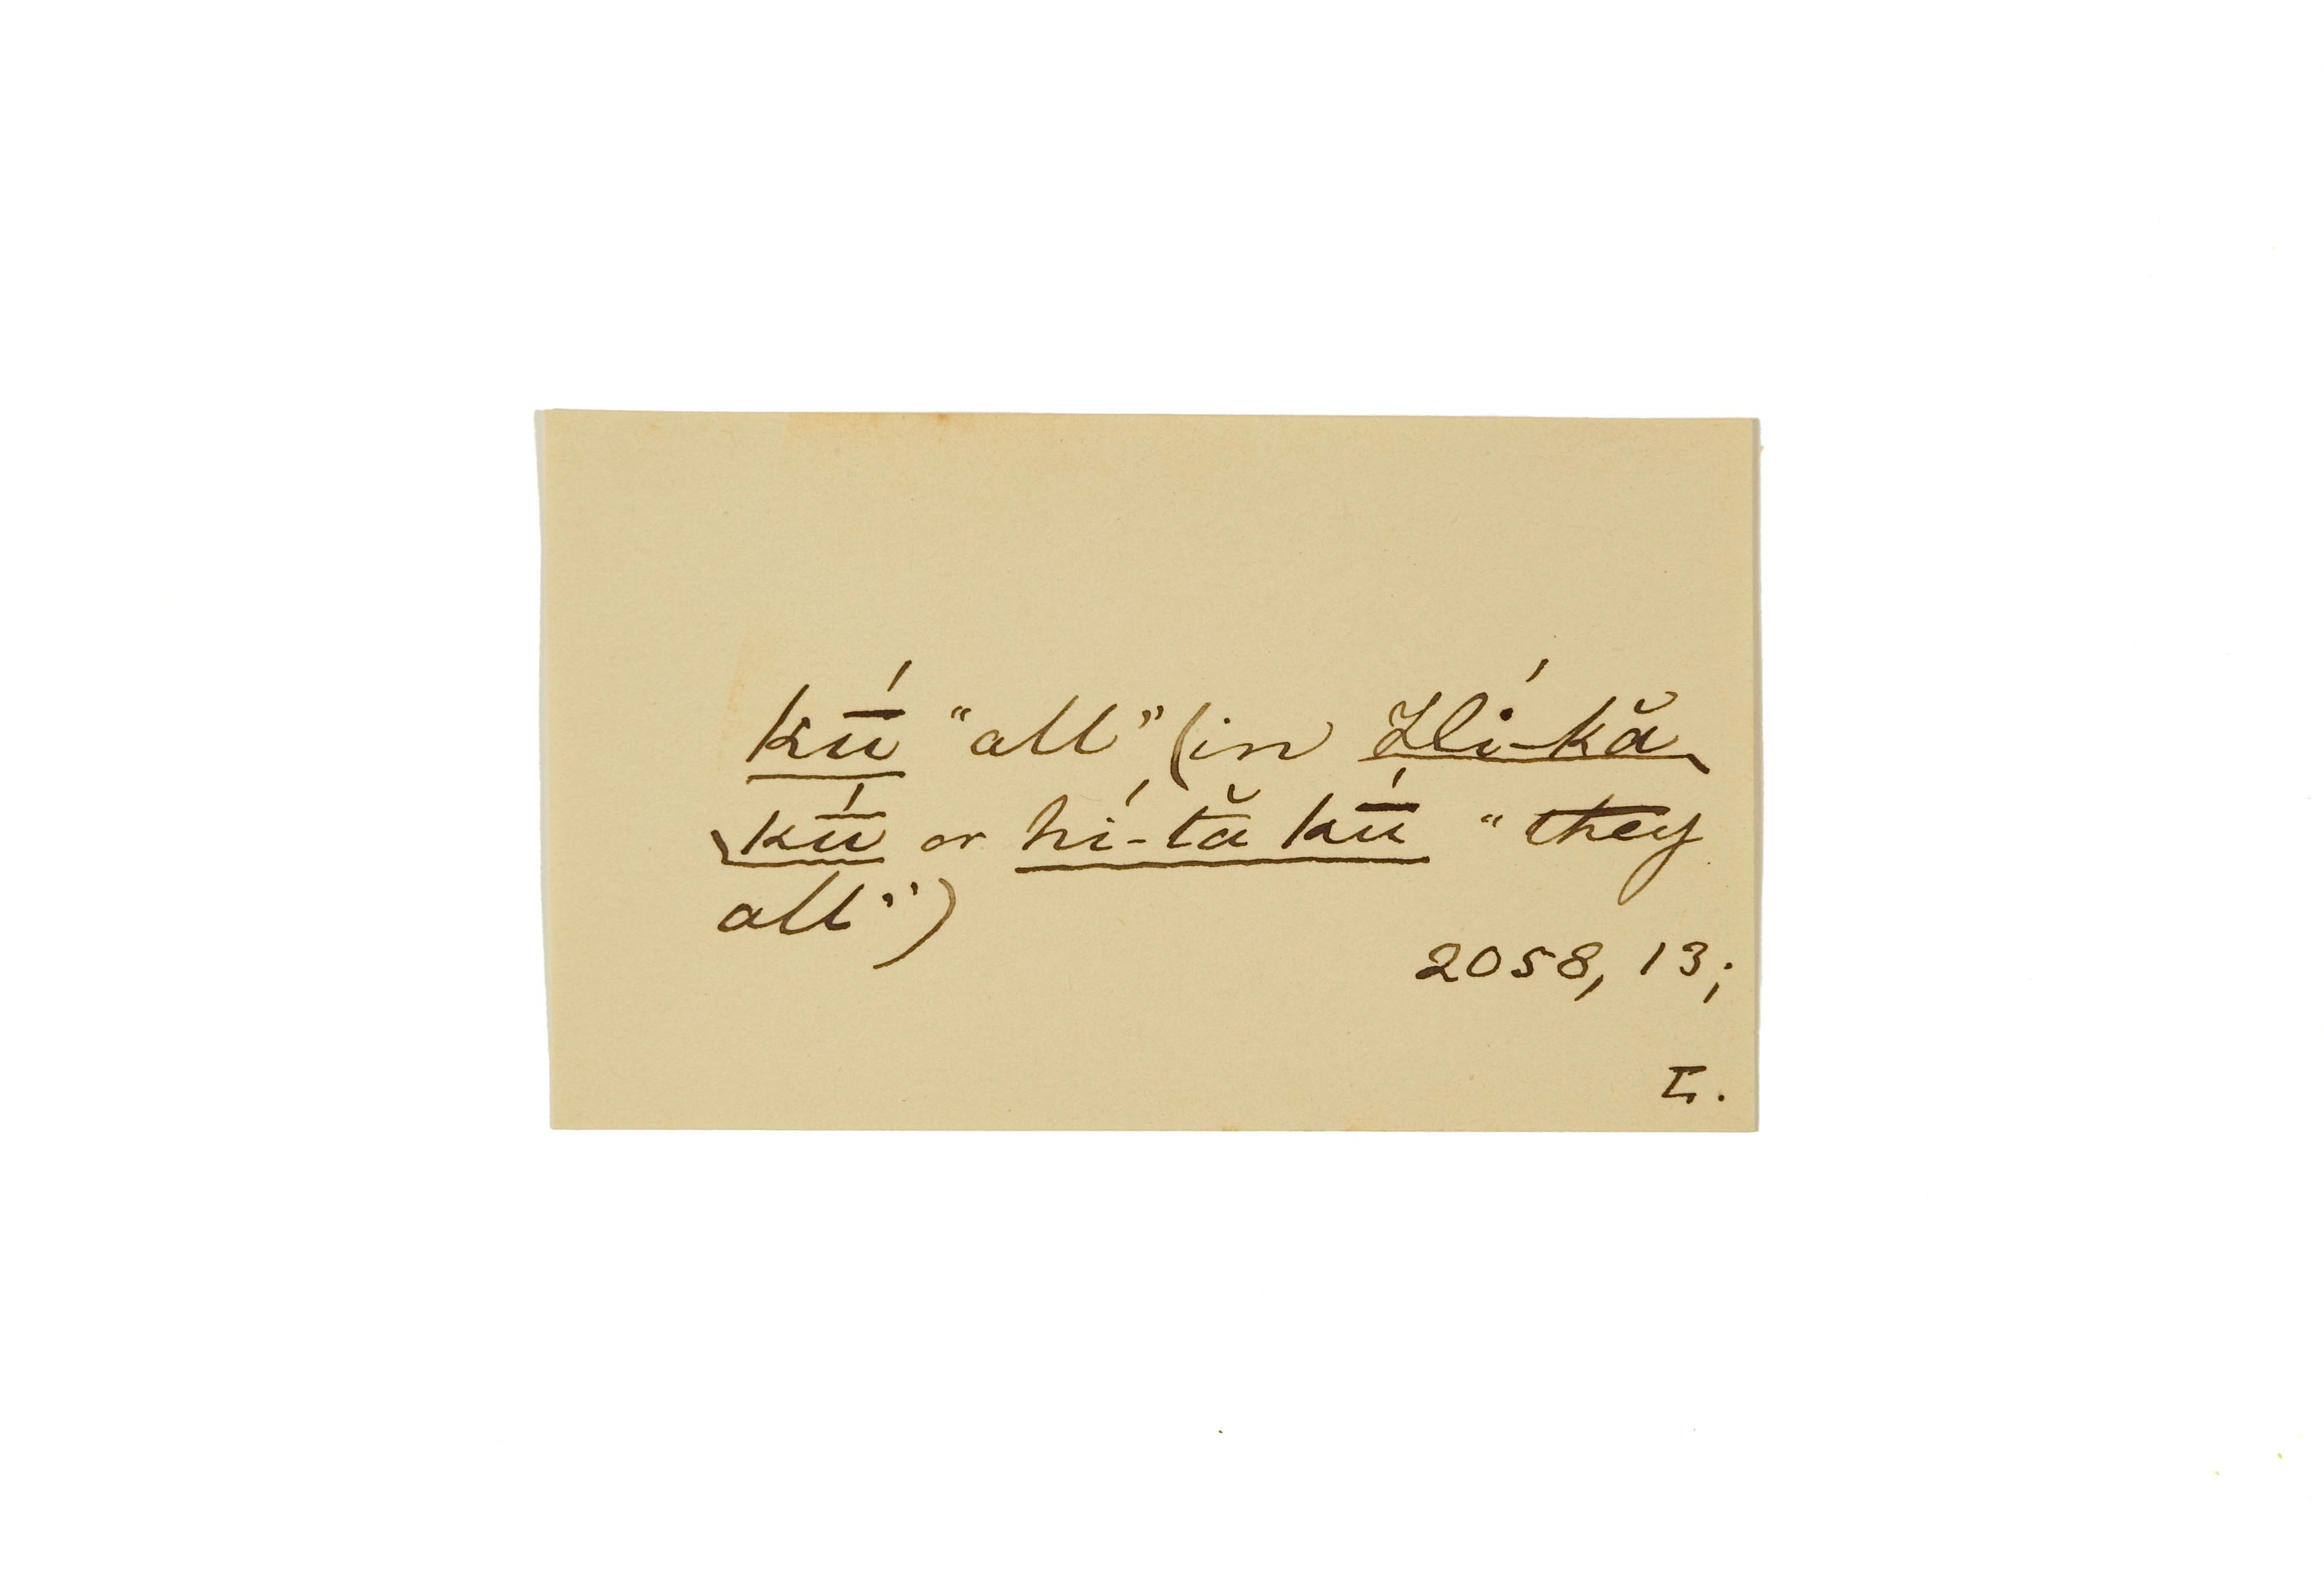 kū́ "all" (in Hí-kă
kū́ or hí-tă kū́ "they
all")
2058, 13;
I.